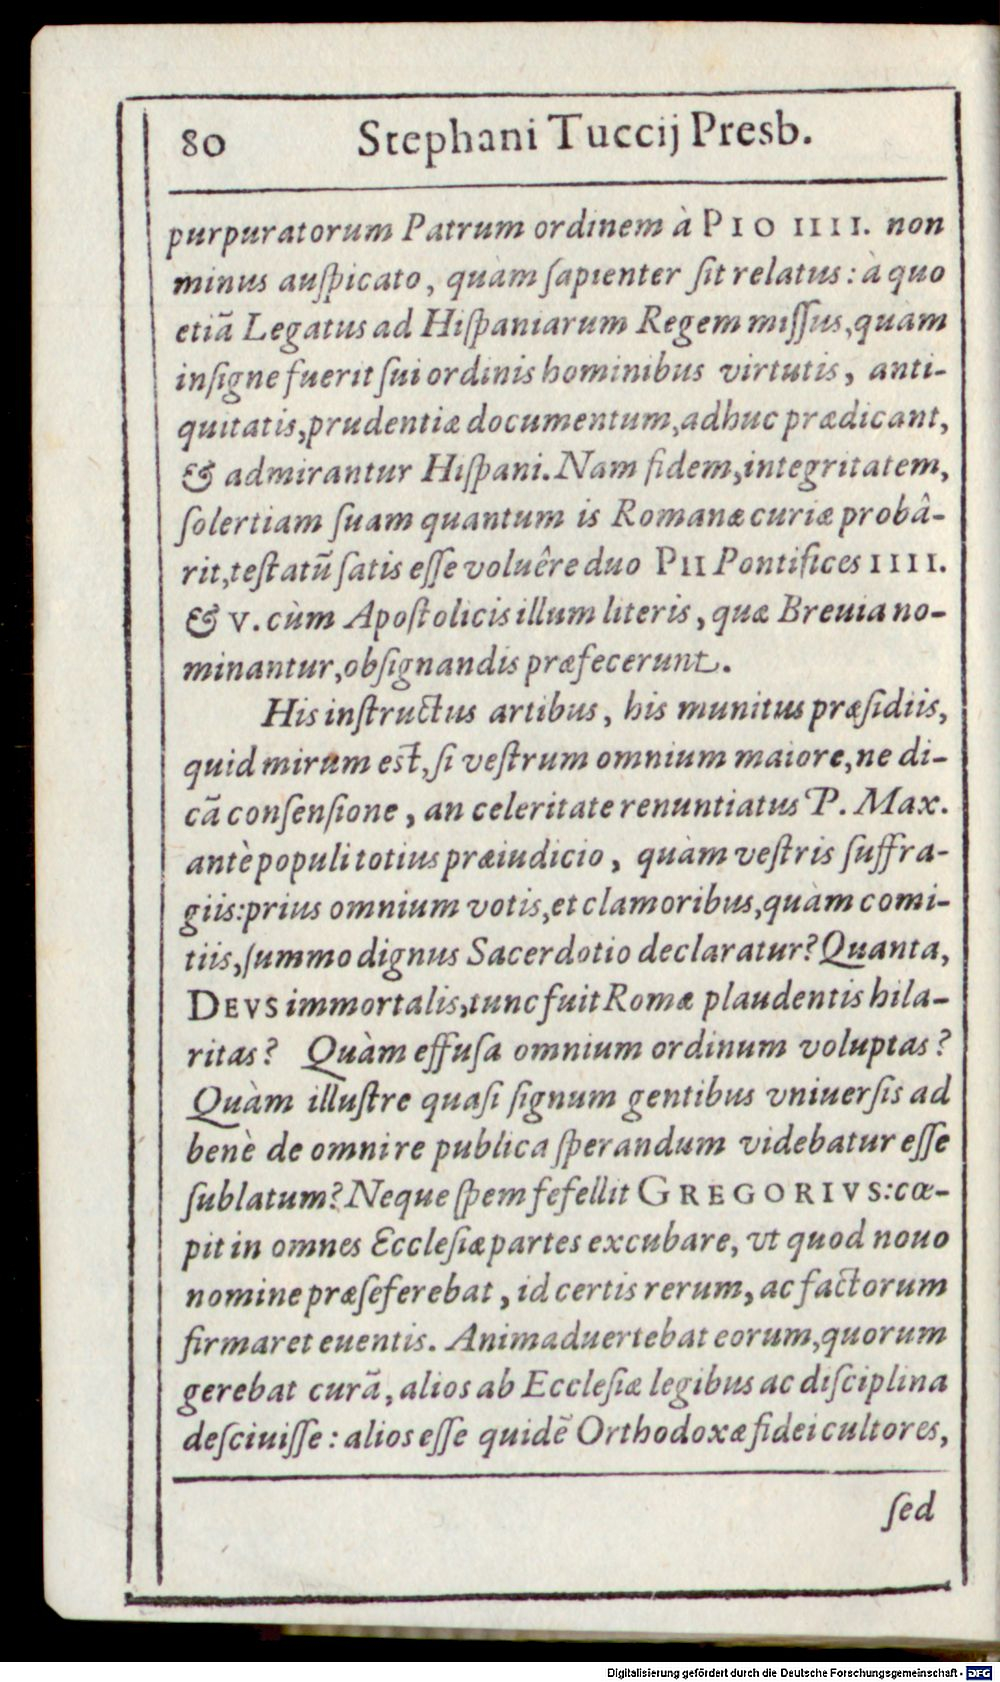 80 Stephani Tuccij Presb.
purpuratorum Patrum ordinem à PIO IIII. non
minus auſpicato, quàm ſapienter ſit relatus: à quo
etiā Legatus ad Hiſpaniarum Regem miſſus, quàm
inſigne fuerit ſui ordinis hominibus virtutis, anti-
quitatis, prudentiæ documentum, adhuc prædicant,
& admirantur Hiſpani. Nam fidem, integritatem,
ſolertiam ſuam quantum is Romanæ curiæ probâ-
rit, teſtatū ſatis eſſe voluêre duo PII Pontifices IIII.
& V. cùm Apoſtolicis illum literis, quæ Breuia no-
minantur, obſignandis præfecerunt.
His inſtructus artibus, his munitus præſidiis,
quid mirum est, ſi veſtrum omnium maiore, ne di-
cā conſenſione, an celeritate renuntiatus P. Max.
antè populi totius præiudicio, quàm veſtris ſuffra-
giis: prius omnium votis, et clamoribus, quàm comi-
tiis, ſummo dignus Sacerdotio declaratur? Quanta,
DEVS immortalis, tunc fuit Romæ plaudentis hila-
ritas? Quàm effuſa omnium ordinum voluptas?
Quàm illuſtre quaſi ſignum gentibus vniuerſis ad
benè de omni re publica ſperandum videbatur eſſe
ſublatum? Neque ſpem fefellit GREGORIVS: cœ-
pit in omnes Eccleſiæ partes excubare, vt quod nouo
nomine præſeferebat, id certis rerum, ac factorum
firmaret euentis. Animaduertebat eorum, quorum
gerebat curā, alios ab Eccleſiæ legibus ac diſciplina
deſciuiſſe: alios eſſe quidē Orthodoxæ fidei cultores,
ſed
Digitalisierung gefördert durch die Deutsche Forschungsgemeinschaft - DFG